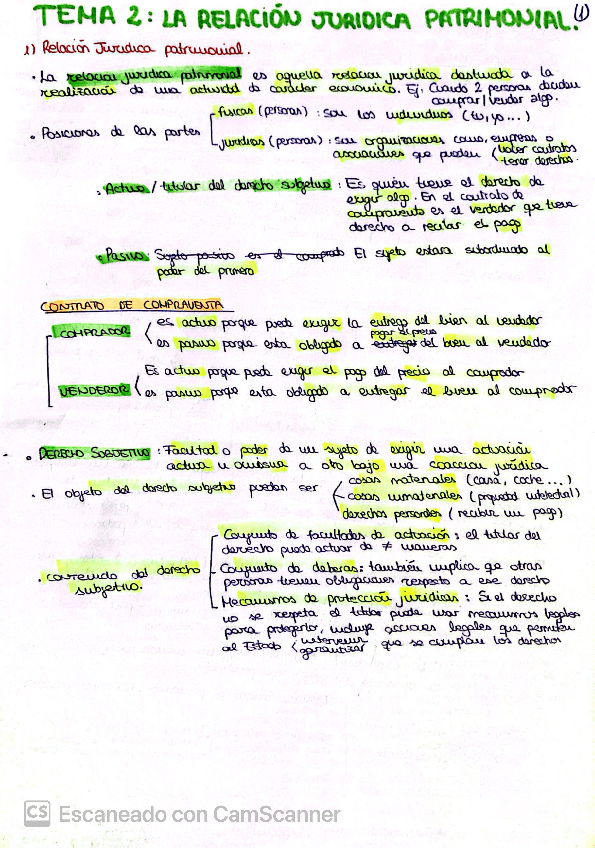 TEMA 2: LA RELACIÓN JURIDICA PATRIMONIAL. (1)
1) Relación Jurídica patrimonial.
· La relacion juridica patrimonial es aquella relacion juridica destinada a la
realización de una actividad de carácter economico. Ej: Cuando 2 personas deciden
comprar/vender algo.
· Posiciones de las partes
físicas (personas): son los individuos (tu, yo...)
jurídicas (personas): son organizaciones como, empresas o
asociaciones que pueden hacer contratos
tener derechos.
· Activa / titular del derecho subjetivo: Es quién tiene el derecho de
exigir algo. En el contrato de
compraventa es el vendedor que tiene
derecho a recibir el pago
· Pasiva: Sujeto pasivo es el comprado El sujeto estara subordinado al
poder del primero
CONTRATO DE COMPRAVENTA
COMPRADOR
es activo porque puede exigir la entrega del bien al vendedor
es pasivo porque esta obligado a pagar el precio entregar del bien al vendedor
VENDEDOR
Es activo porque puede exigir el pago del precio al comprador
es pasivo porque esta obligado a entregar el bien al comprador
· DERECHO SUBJETIVO: Facultad o poder de un sujeto de exigir una actuación
activa u omisiva a otro bajo una coaccion jurídica
· El objeto del derecho subjetivo pueden ser
cosas materiales (casa, coche...)
cosas inmateriales (propiedad intelectual)
derechos personales (recibir un pago)
· contenido del derecho
subjetivo.
Conjunto de facultades de actuación: el titular del
derecho puede actuar de ≠ maneras
Conjunto de deberes: también implica que otras
personas tienen obligaciones respecto a ese derecho
Mecanismos de protección jurídicas: Si el derecho
no se respeta el titular puede usar mecanismos legales
para protegerlo, incluye acciones legales que permiten
al Estado intervenir
garantizar que se cumplan los derechos
CS Escaneado con CamScanner